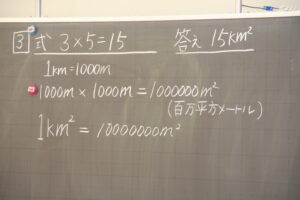 3 式 3×5=15 答え 15km²
1km=1000m
1000m×1000m=1000000m²
(百万平方メートル)
1km²=1000000m²